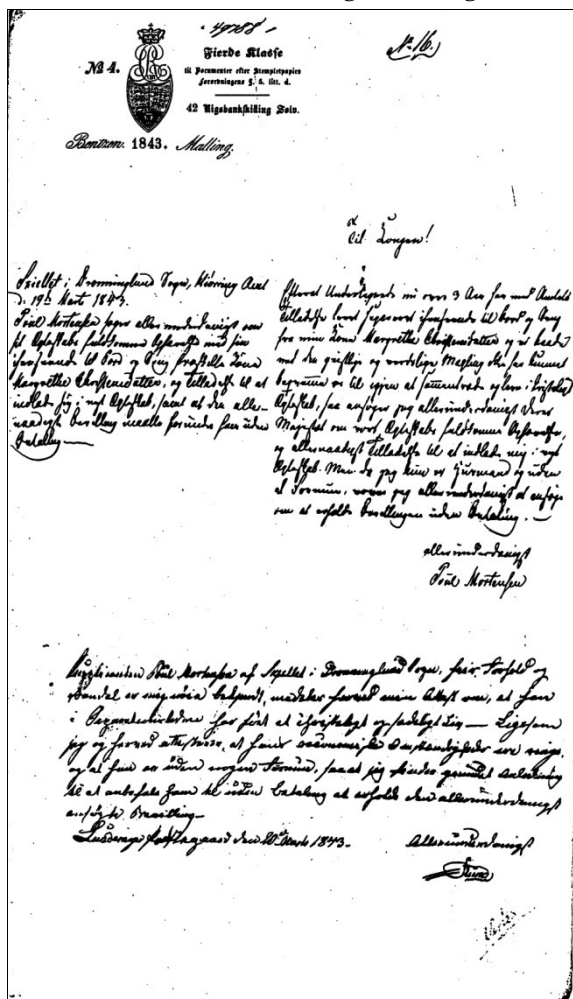 49788
No. 16.
Fierde Klasse
til Documenter efter Stempletpapirs
Forordningens §. 5. litt. d.
No 4.
42 Rigsbankskilling Sølv.
Bentzon. 1843. Malling.
Til Kongen!
Skiellet i Dronninglund Sogn, Hiörring Amt
d. 19de Marts 1843.
Poul Mortensen søger allerunderdanigst om
sit Egteskabs fuldkomne Ophævelse med sin
fraskilte Kone
Margrethe Christensdatter, og Tilladelse til at
indlade sig i nyt Egteskab, samt at den aller-
naadigste Bevilling maatte forundes ham uden
Betaling
Efterat Undertegnede nu over 3 Aar har med Amtets
Tilladelse levet separeret til Bord og Seng
fra min Kone Margrethe Christensdatter og vi
ved den geistlige og verdslige Mægling ikke har kunnet
os til igjen at sammentræde og leve i
Egteskab, saa ansøger jeg allerunderdanigst Deres
Majestæt om vort Egteskabs fuldkomne Ophævelse,
og allernaadigst Tilladelse til at indlade mig i nyt
Egteskab. Men da jeg kun er Huusmand og uden
al Formue, vover jeg allerunderdanigst at ansøge
om at erholde Bevillingen uden Betaling.
allerunderdanigst
Poul Mortensen
Supplicanten Poul Mortensen af Skiellet i Dronninglund Sogn, hvis Forhold og
Vandel er mig nøie bekjendt, meddeles herved min Attest om, at han
i Separationstiden har ført et christeligt og sædeligt Liv — Ligesom
jeg og herved attesterer, at hans oeconomiske Omstændigheder ere ringe,
og at han er uden nogen Formue, saa at jeg finder grundet Anledning
til at anbefale ham til uden Betaling at erholde den allerunderdanigst
ansøgte Bevilling
den 20de Marts 1843.
Allerunderdanigst